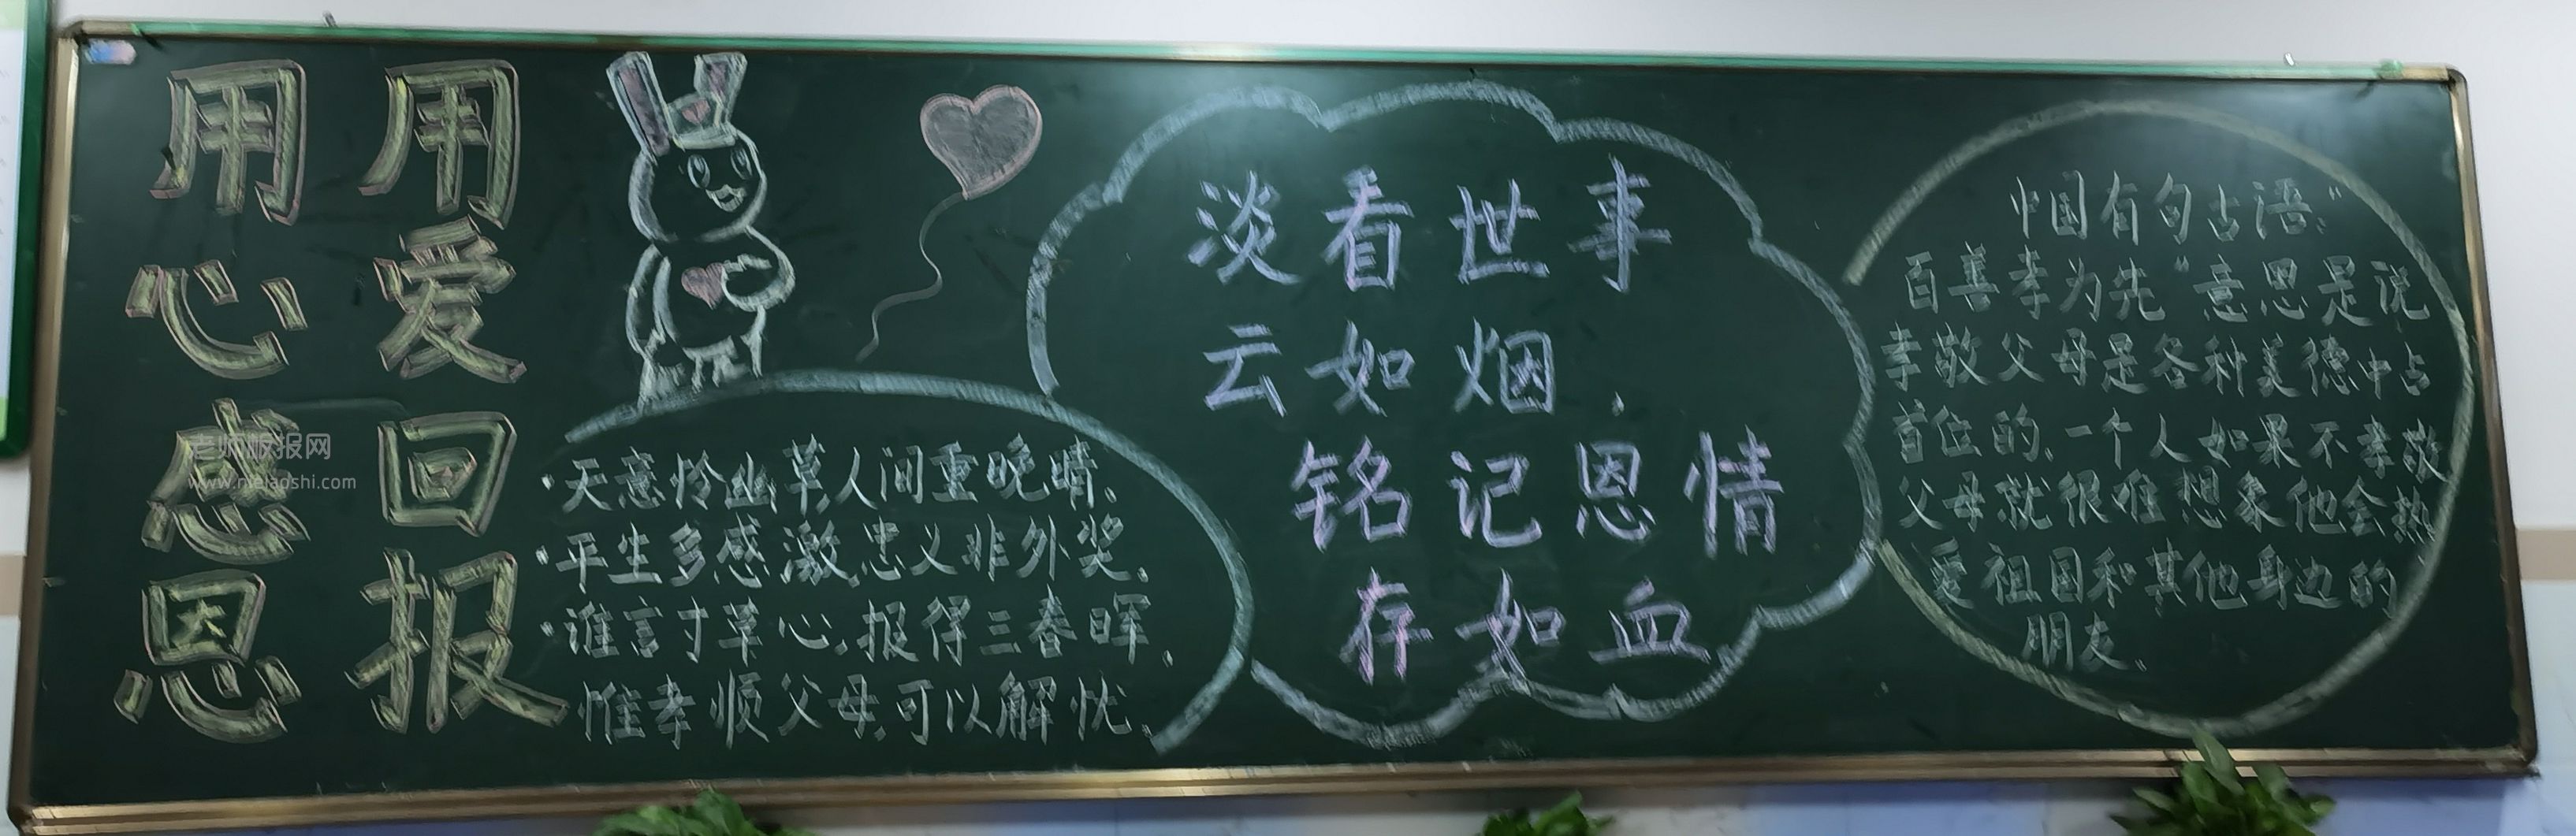 用心感恩
用爱回报
老师板报网
www.meladshi.com
·天意怜幽草,人间重晚晴。
·平生多感激,忠义非外奖。
·谁言寸草心,报得三春晖。
惟孝顺父母,可以解忧。
淡看世事
云如烟,
铭记恩情
存如血
中国有句古语:“
百善孝为先”意思是说
孝敬父母是各种美德中占
首位的.一个人如果不孝敬
父母就很难想象他会热
爱祖国和其他身边的
朋友.